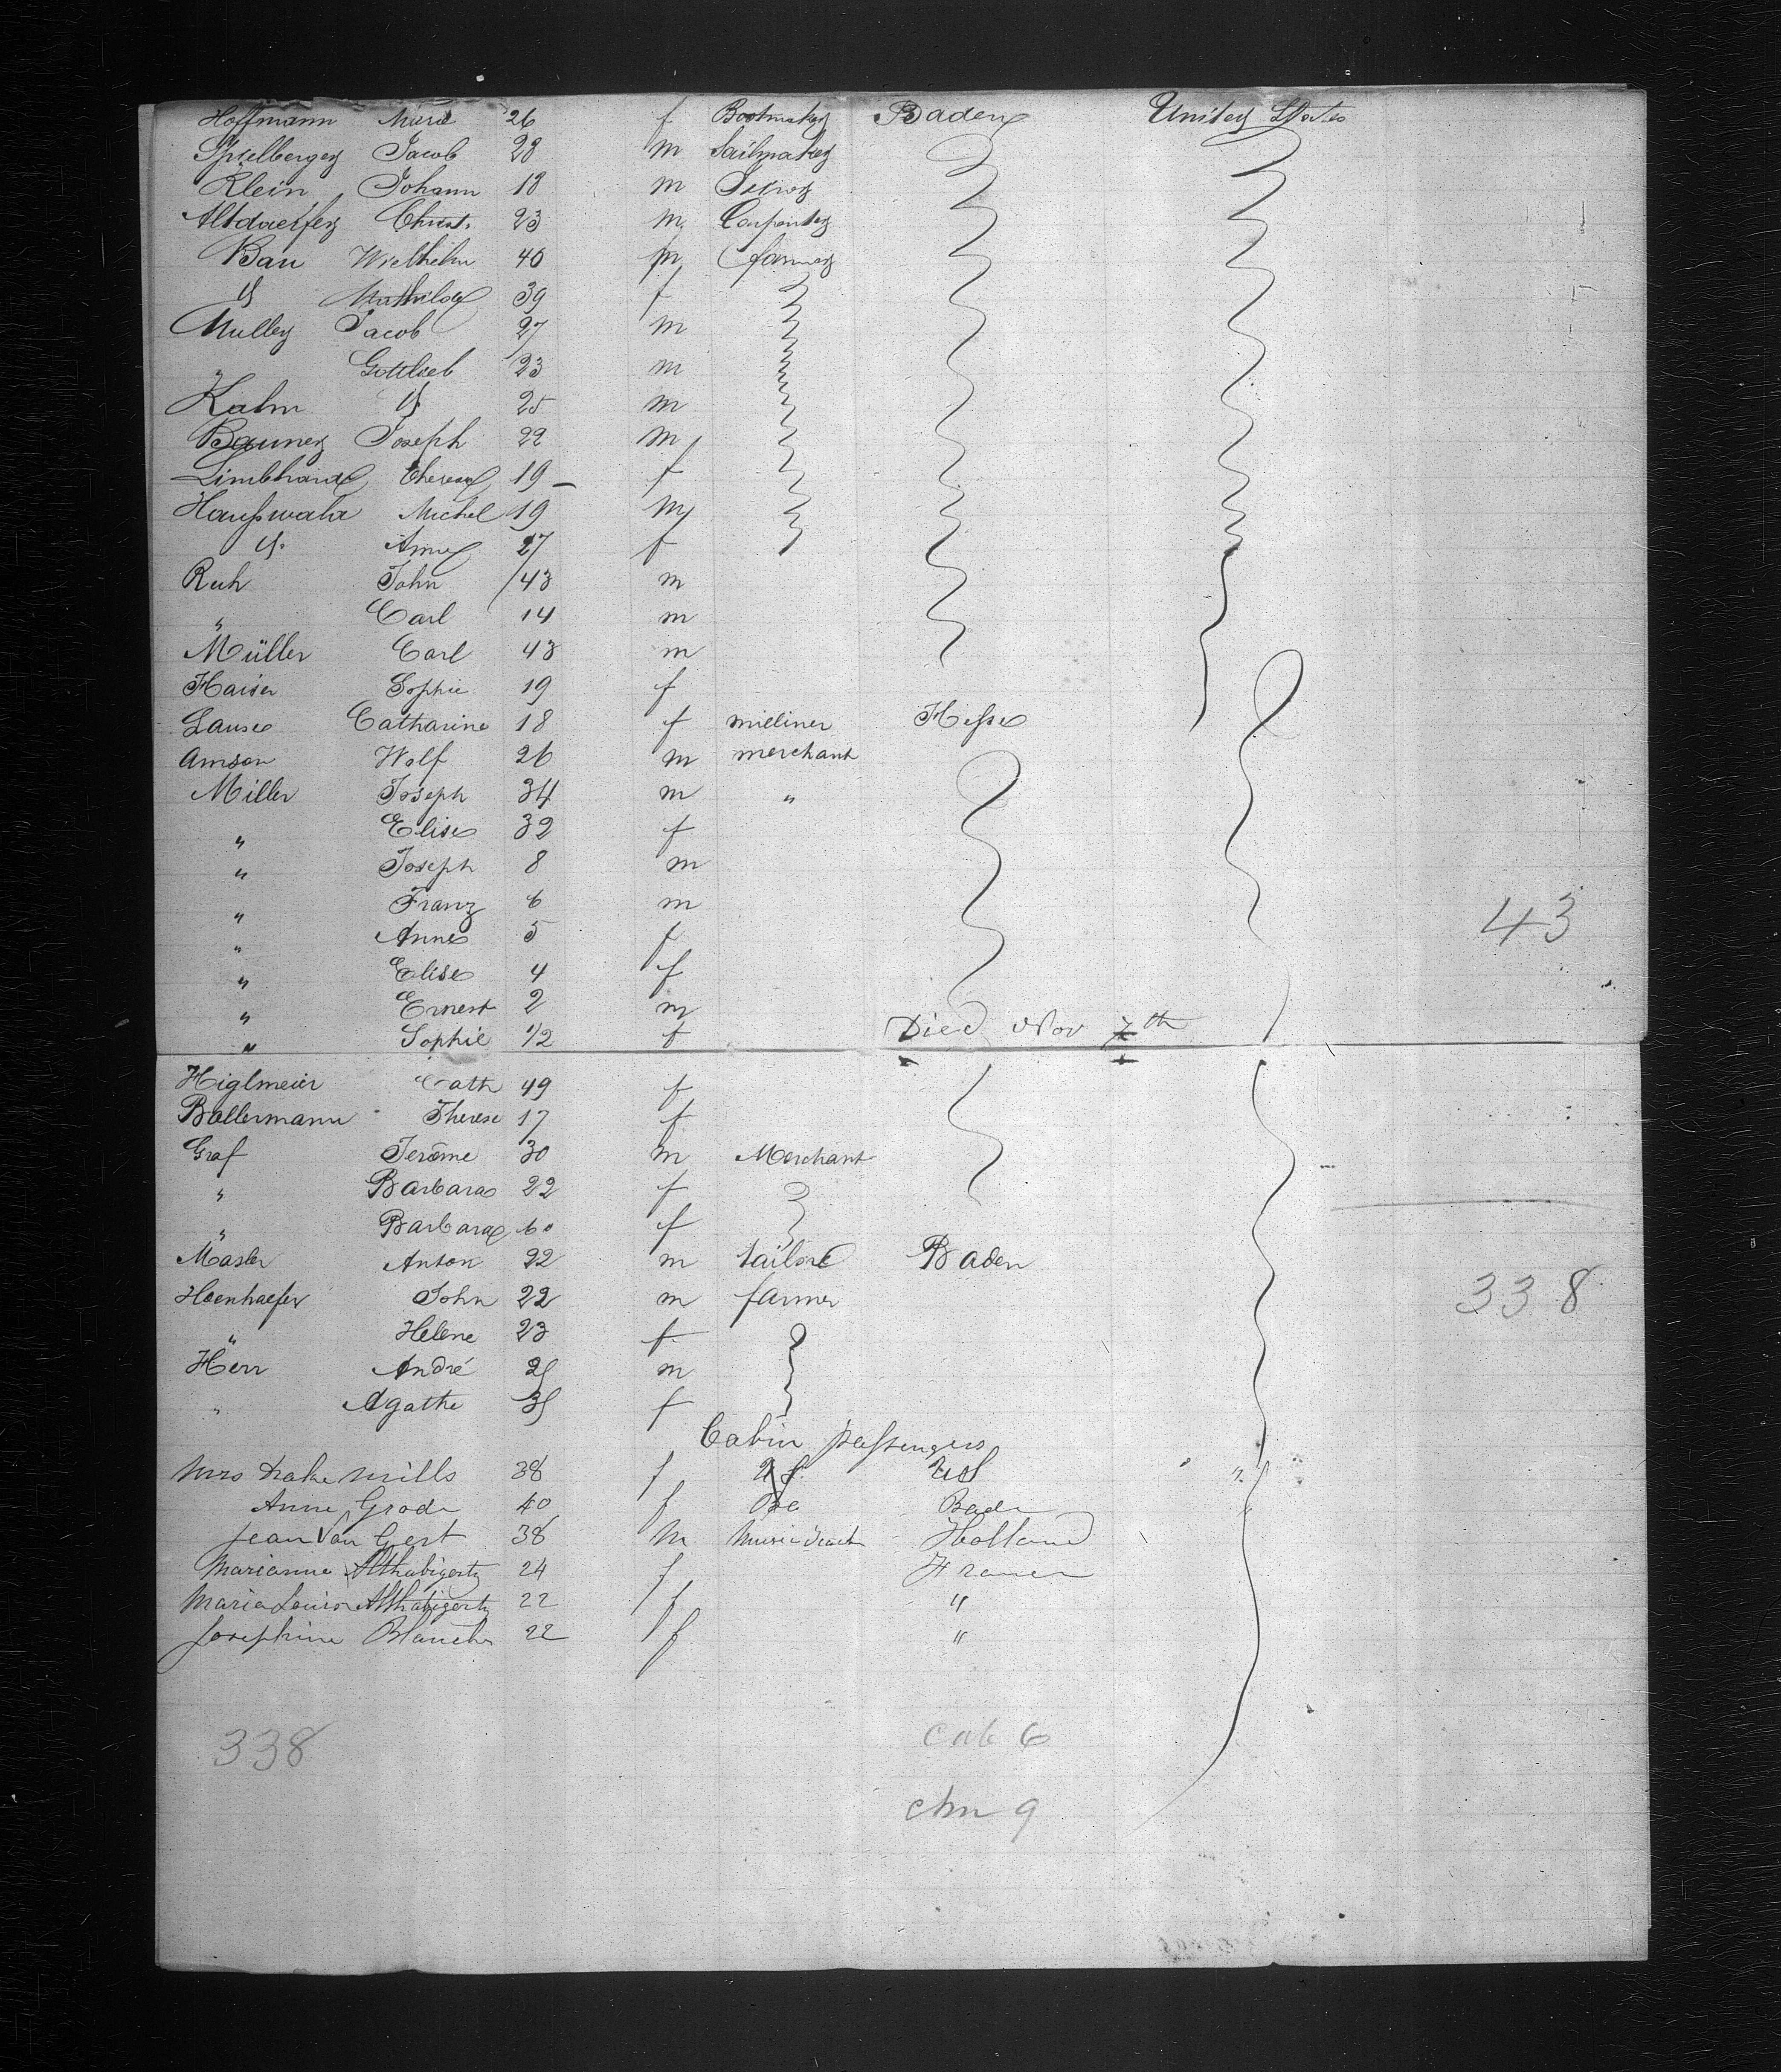 Hoffmann Marie 26 f Bootmaker Baden United States
Spielberger Jacob 28 m Sailmaker
Klein Johann 18 m
Altdoerfer Christ. 23 m Carpenter
Bau Wielhelm 40 m farmer
id Mathilde 39 f
Muller Jacob 27 m
" Gottlieb 23 m
Kalm id 25 m
Bauner Joseph 22 m
Limbhard Therese 19 f
Haußwald Michel 19 m
id. Anne 27 f
Ruh John 43 m
" Carl 14 m
Müller Carl 43 m
Kaiser Sophie 19 f
Lause Catharine 18 f milliner Hesse
Amson Wolf 26 m merchant
Miller Joseph 34 m "
" Elise 32 f
" Joseph 8 m
" Franz 6 m
" Anne 5 f
" Elise 4 f
" Ernest 2 m
" Sophie 1/2 f Died Nov 7th
43
Higlmeier Cath 49 f
Ballermann Therese 17 f
Graf Jerôme 30 m Merchant
" Barbara 22 f
" Barbara 60 f
Masler Anton 22 m tailor Baden
Hoenhaefer John 22 m farmer
338
" Helene 23 f
Herr André 25 m
" Agathe 35 f
Cabin passengers
Mrs Drake Mills 38 f US "
Anne Grode 40 f Bade "
Jean Van Gert 38 m Music teach Holland
Marianne Althabigerty 24 f France
Maria Louise Althabigerty 22 f "
Josephine Blanche 22 f "
338
cab 6
chn 9